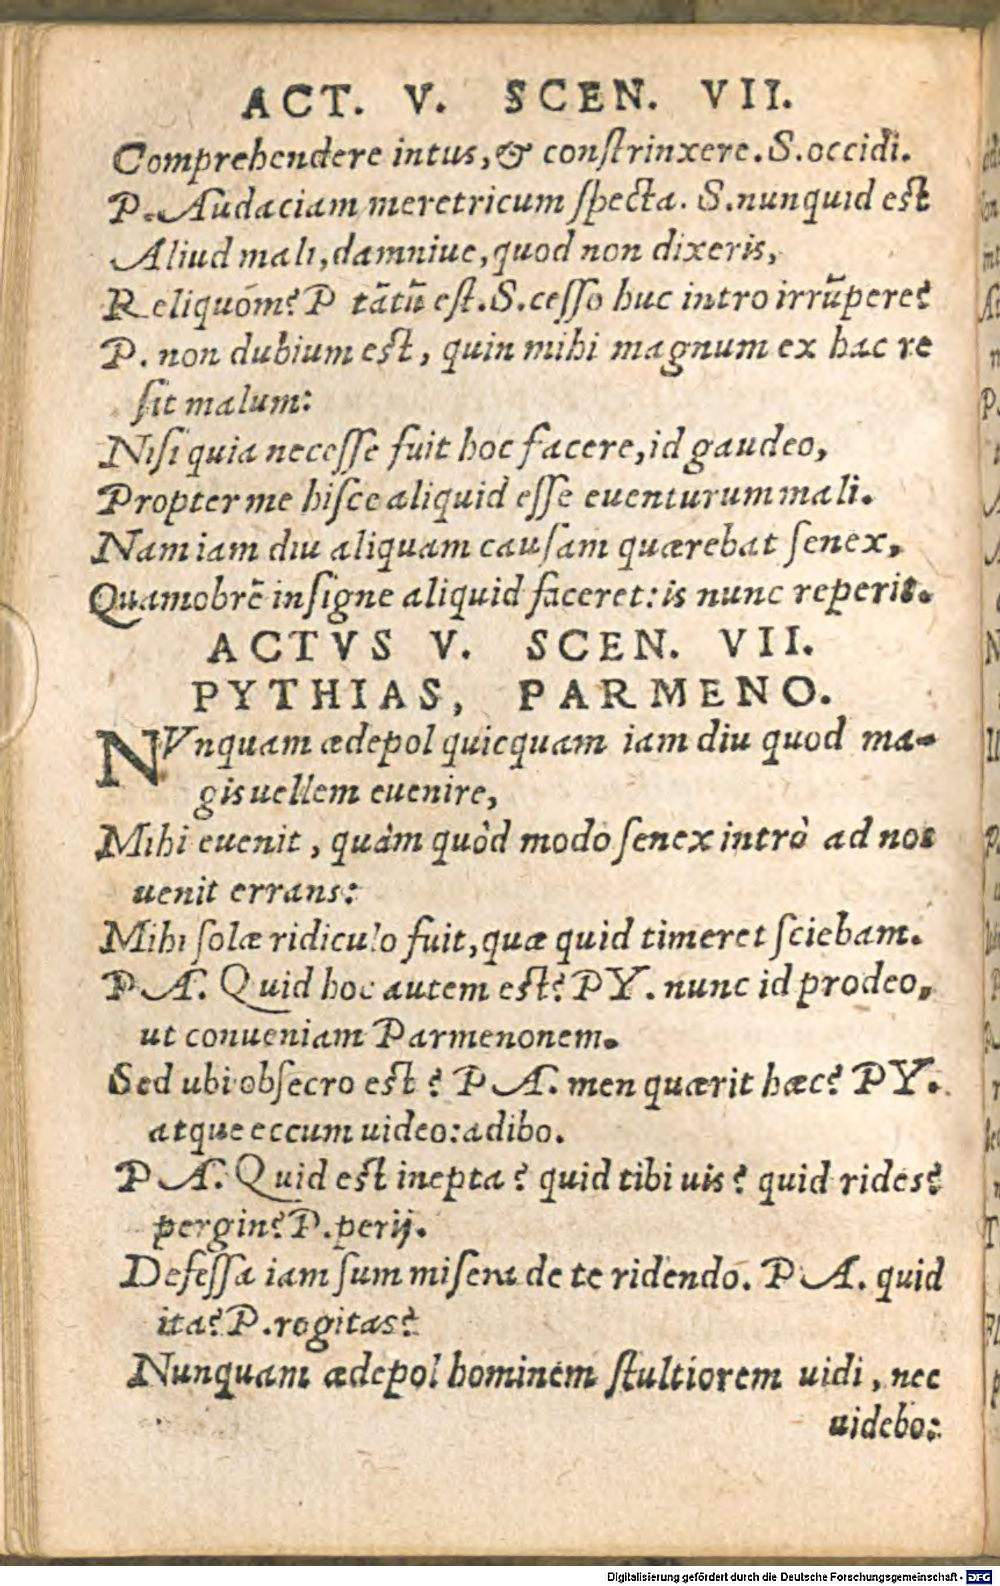 ACT. V. SCEN. VII.
Comprehendere intus, & conſtrinxere. S. occidi.
P. Audaciam meretricum ſpecta. S. nunquid est
Aliud mali, damniue, quod non dixeris,
Reliquóm? P tãtũ eſt. S. ceſſo huc intro irrũpere?
P. non dubium est, quin mihi magnum ex hac re
ſit malum:
Niſi quia neceſſe fuit hoc facere, id gaudeo,
Propter me hiſce aliquid eſſe euenturum mali.
Nam iam diu aliquam cauſam quærebat ſenex,
Quamobrẽ inſigne aliquid faceret: is nunc reperit.
ACTVS V. SCEN. VII.
PYTHIAS, PARMENO.
NVnquam ædepol quicquam iam diu quod ma-
gis uellem euenire,
Mihi euenit, quàm quòd modo ſenex intrò ad nos
uenit errans:
Mihi ſolæ ridiculo fuit, quæ quid timeret ſciebam.
PA. Quid hoc autem est? PY. nunc id prodeo,
ut conueniam Parmenonem.
Sed ubi obſecro est? PA. men quærit hæc? PY.
atque eccum uideo: adibo.
PA. Quid est inepta? quid tibi uis? quid rides?
pergin? P. perij.
Defeſſa iam ſum miſera de te ridendo. PA. quid
ita? P. rogitas?
Nunquam ædepol hominem ſtultiorem uidi, nec
uidebo:
Digitalisierung gefördert durch die Deutsche Forschungsgemeinschaft - DFG